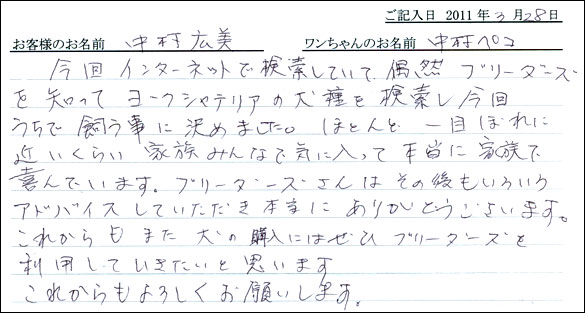 ご記入日 2011年3月28日
お客様のお名前 中村広美 ワンちゃんのお名前 中村ペコ
今回インターネットで検索していて、偶然ブリーダーズ
を知ってヨークシャテリアの犬種を検索し今回
うちで飼う事に決めました。ほとんど一目ぼれに
近いくらい家族みんなで気に入って本当に家族で
喜んでいます。ブリーダーズさんはその後もいろいろ
アドバイスしていただき本当にありがとうございます。
これからもまた犬の購入にはぜひブリーダーズを
利用していきたいと思います
これからもよろしくお願いします。